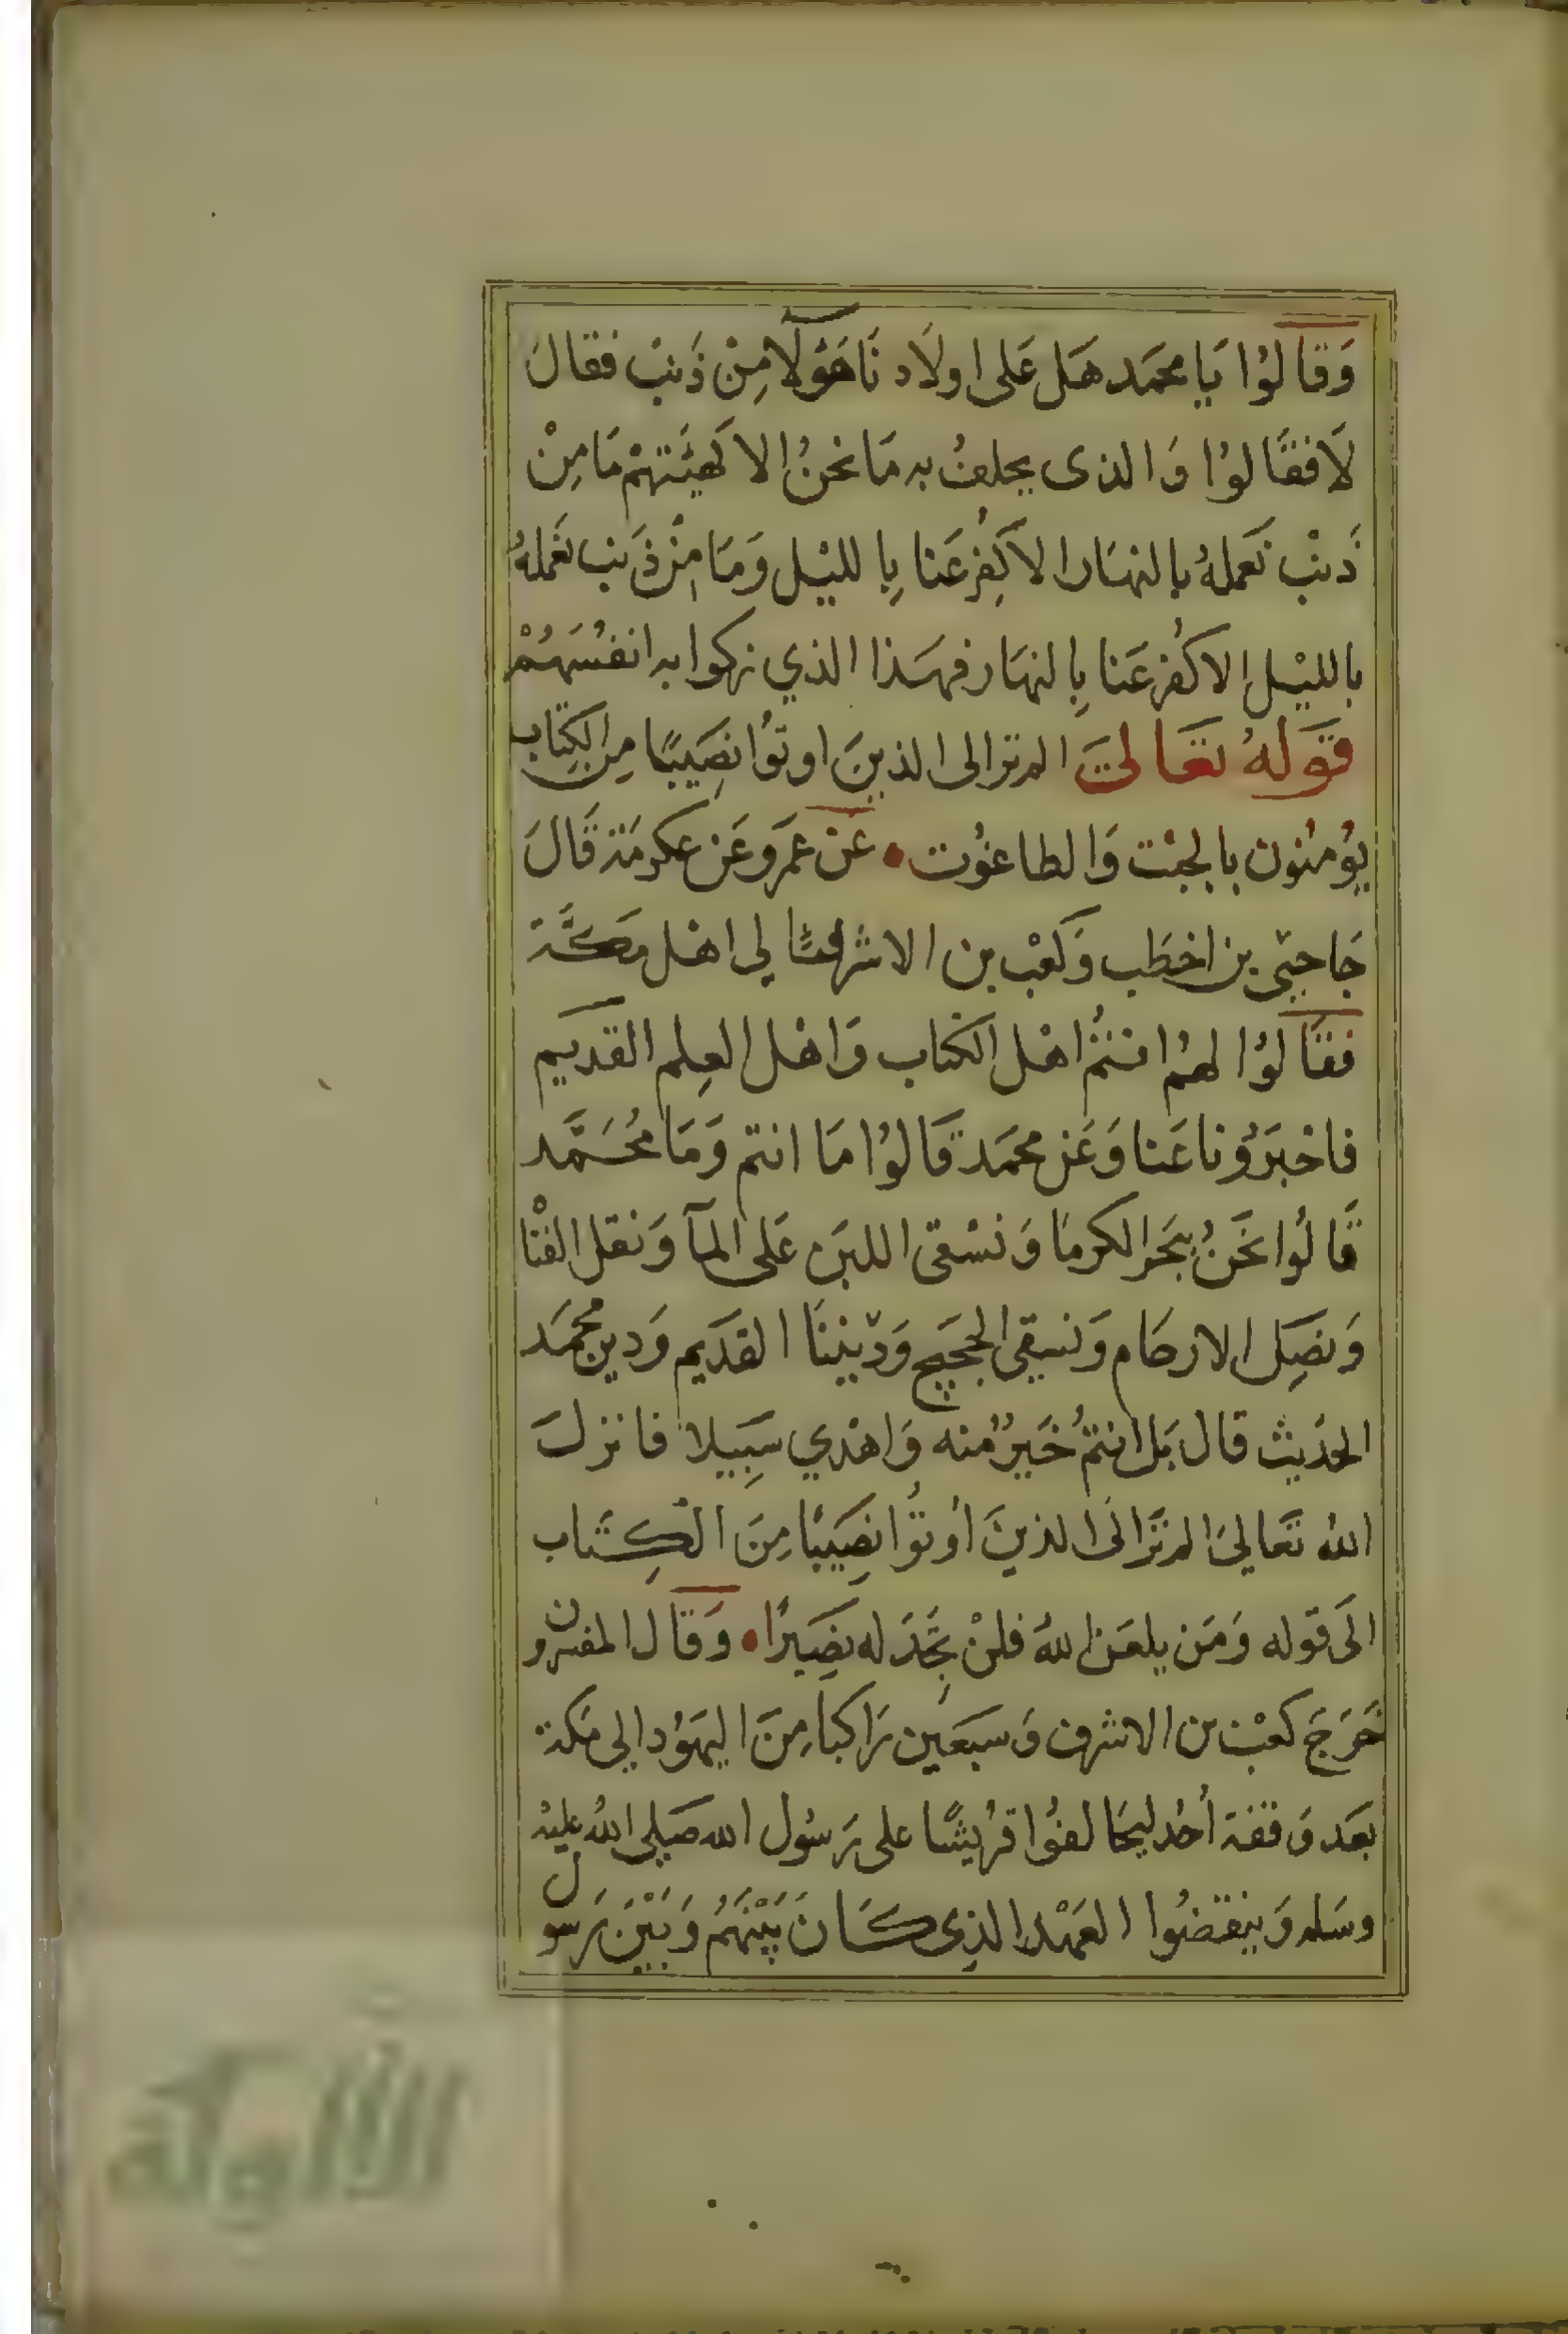 وَقالوُا يَا محمَد هَل عَلى اولَاد نَا هَؤلآ مِنْ ذَنبْ فقالَ
لَا فقَالوُا وَالذى يحلفُ به مَا نحنُ الا كَهيئتهمْ مَا مِنْ
ذَنبْ نَعملهُ بالنهَار الا كُفِرْ عَنا بِالليْل وَمَا مِنْ ذَنب نعَملهُ
بالليْل الا كُفِر عَنا بِالنهَار فهَذا الذي زكوا به انفسَهُمْ
قَولهُ تعَالىَ الم تر الى الذينَ اوتوُا نصِيبًا مِن الكِتاب
يوُمنون بالجبْت وَالطاغوُت • عَن عمَرو عَن عكرمَة قَالَ
جَا حيّي بن اخطَب وَكعْب بن الاشرف الي اهْل مَكَّة
فقَالوُا لهمُ انتمُ اهْل الكتاب وَاهْل العِلم القديم
فاخبرَوُنا عَنا وَعَن محمَد قَالوُا مَا انتم وَمَا محُمَّد
قَالوُا نحَنُ ننحَر الكرمَا وَنسْقى اللبَن عَلى المآ وَنفك العْنَا
وَنصِل الارحَام وَنسقي الحجَيج وَدّيننَا القدَيم وَدين محمَد
الحدَيث قال بَل انتمُ خَيرُ منه وَاهْدي سَبِيلا فانزلَ
اللهُ تعَالىَ الم تَر الَى الذينَ أوتوُا نصِيَبًا مِنَ الكِتَاب
الَى قوله وَمَن يلعَن اللهُ فلنْ تجِدَ له نصِيَرًا • وَقَال المفسرون
خَرَجَ كعْب بن الاشرف وَسبَعين رَاكبا مِنَ اليهَوُد الي مَكة
بعَد وَقعَة أحُد ليحَالفوُا قرُيشًا على رَسُول الله صَلى اللهُ عليْه
وسَلم وَينقضُوا العَهْد الذِى كَانَ بَيْنَهُمُ وَبَيْنَ رَسول
الألوكة